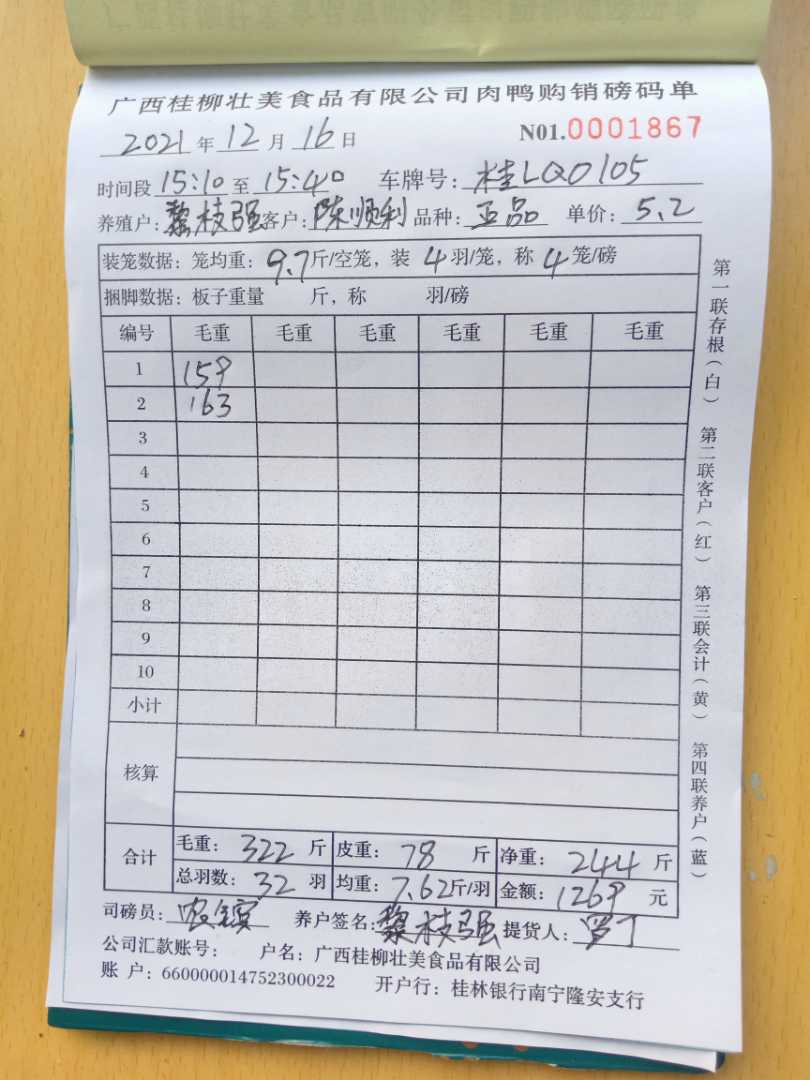 广西桂柳壮美食品有限公司肉鸭购销磅码单
2021年12月16日 N01.0001867
时间段15:10至15:40 车牌号:桂LQ0105
养殖户:黎枝强客户:陈顺利品种:正品 单价:5.2
装笼数据:笼均重:9.7斤/空笼,装4羽/笼,称4笼/磅
捆脚数据:板子重量 斤,称 羽/磅
编号 毛重 毛重 毛重 毛重 毛重 毛重
1 159
2 163
3
4
5
6
7
8
9
10
小计
核算
合计 毛重:322斤 皮重:78斤 净重:244斤
总羽数:32羽 均重:7.62斤/羽 金额:1269元
司磅员: 养户签名:黎枝强 提货人:罗丁
公司汇款账号: 户名:广西桂柳壮美食品有限公司
账 户:660000014752300022 开户行:桂林银行南宁隆安支行
第一联存根(白) 第二联客户(红) 第三联会计(黄) 第四联养户(蓝)